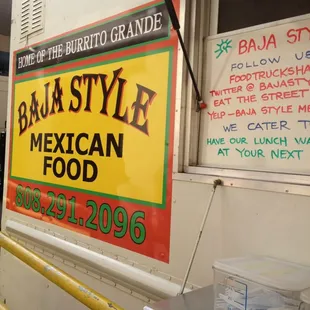 HOME OF THE BURRITO GRANDE
BAJA STYLE
MEXICAN
FOOD
808.291.2096
BAJA STY
FOLLOW U
FOODTRUCKSHA
TWITTER @ BAJASTY
EAT THE STREET
YELP-BAJA STYLE ME
WE CATER T
HAVE OUR LUNCH WA
AT YOUR NEXT